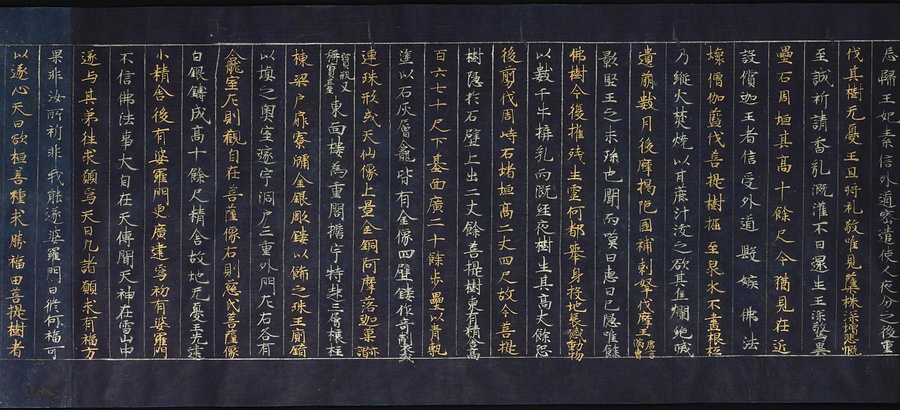 忌歸王妃素信外道密遣使人夜分之後重
伐其樹无憂王旦将礼敬唯見蘖株深增悲慨
至誠祈請香乳溉灌不日還生王深敬異
疊石周垣其高十餘尺今猶見在近
設賞迦王者信受外道毀嫉佛法
壞僧伽藍伐菩提樹掘至泉水不盡根柢
乃縱火焚燒以甘蔗汁沃之欲其燋爛絕滅
遺萌數月後摩揭陀國補剌拏伐摩王唐言滿冑
憂王之末孫也聞而嘆曰惠日已隱唯餘
佛樹今復摧殘生靈何都舉身投地哀感動物
以數千牛搆乳而溉經夜樹生其高丈餘恐
後剪伐周峙石堵垣高二丈四尺故今菩提
樹隱於石壁上出二丈餘菩提樹東有精舍高
百六七十尺下基面廣二十餘步疊以青甎
塗以石灰層龕皆有金像四壁鏤作奇製或
連珠形或天仙像上置金銅阿摩落迦菓亦謂
寶瓶又稱寶臺東面接為重閣檐宇特起三層榱柱
棟梁戶扉寮牖金銀彫鏤以飾之珠玉廁錯
以填之奧室邃宇洞戶三重外門左右各有
龕室左則觀自在菩薩像右則慈氏菩薩像
白銀鑄成高十餘尺精舍故地无憂王先建
小精舍後有婆羅門更廣建焉初有婆羅門
不信佛法事大自在天傳聞天神在雪山中
遂与其弟往求願焉天曰凡諸願求有福方
果非汝所祈非我能遂婆羅門曰修何福可
以遂心天曰欲植善種求勝福田菩提樹者